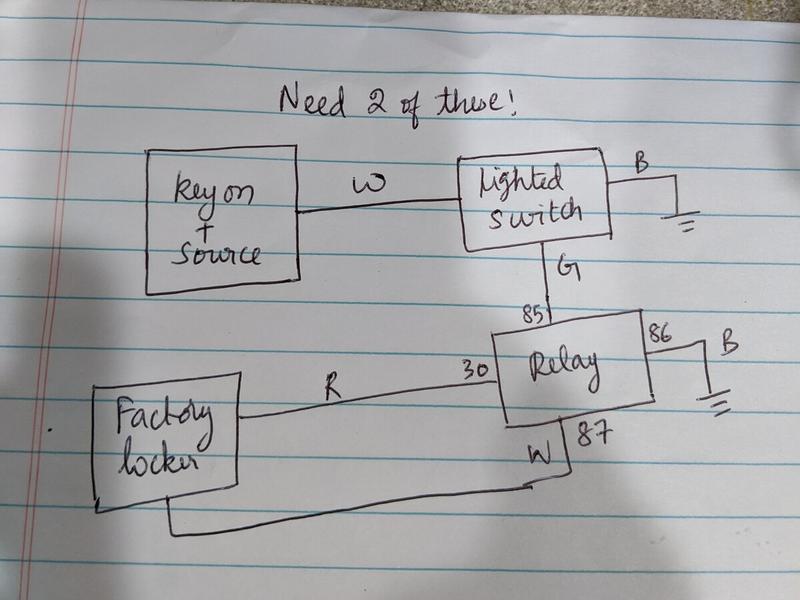 Need 2 of these!
Key on
+
Source
W
Lighted
Switch
B
G
85
Relay
86
B
30
R
87
W
Factory
locker